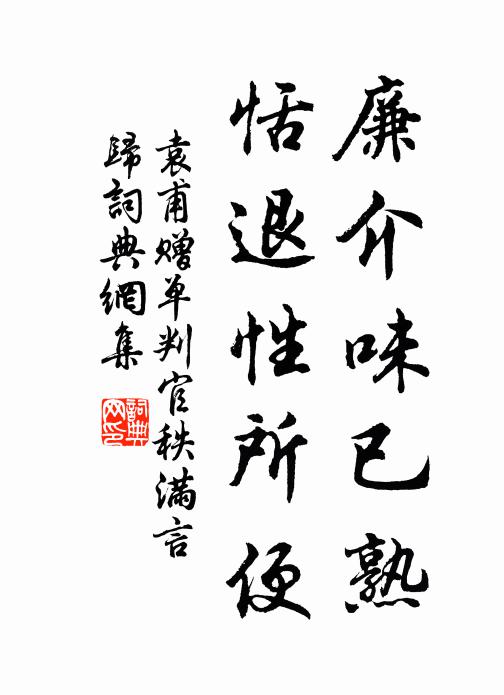 廉介味已熟
恬退性所便
袁甫赠单判官秩满言
歸詞典網集
詞典
网印